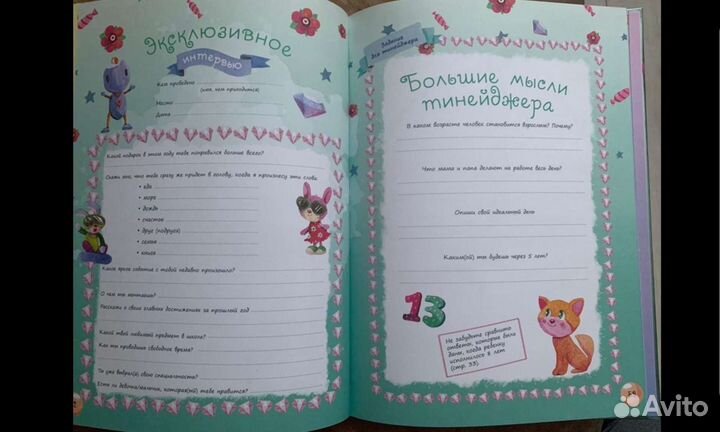 Эксклюзивное
интервью
Кем проведено
(имя, кем приходится)
Место
Дата
Какой подарок в этом году тебе понравился больше всего?
Скажи мне, что тебе сразу же придет в голову, когда я произнесу эти слова:
• еда
• море
• дождь
• счастье
• друг (подруга)
• семья
• книга
Какое яркое событие с тобой недавно произошло?
О чем ты мечтаешь?
Расскажи о своих главных достижениях за прошлый год
Какой твой любимый предмет в школе?
Как ты проводишь свободное время?
Ты уже выбрал(а) свою специальность?
Есть ли девочка/мальчик, которая(ый) тебе нравится?
Задание
для тинейджера
Большие мысли
тинейджера
В каком возрасте человек становится взрослым? Почему?
Что мама и папа делают на работе весь день?
Опиши свой идеальный день
Каким(ой) ты будешь через 5 лет?
13
Не забудьте сравнить
ответы, которые были
даны, когда ребенку
исполнилось 8 лет
(стр. 33)
Avito